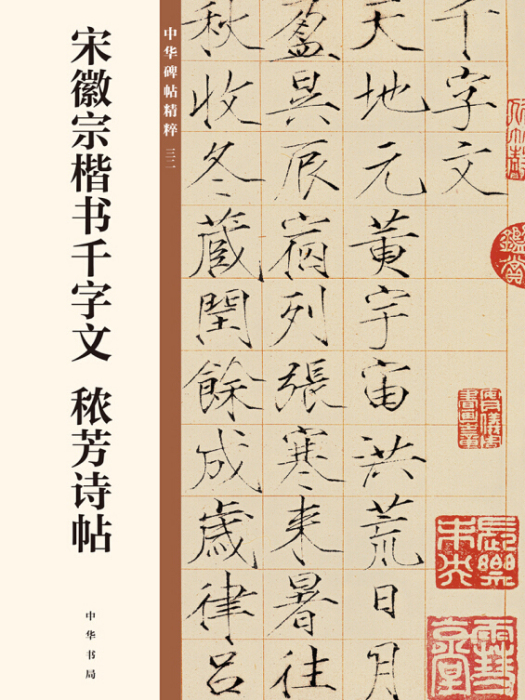 宋徽宗楷书千字文 秾芳诗帖
中华书局
中华碑帖精粹 三二
千字文
天地元黃宇宙洪荒日月
盈昃辰宿列張寒来暑往
秋收冬藏閏餘成歲律呂
鑑賞